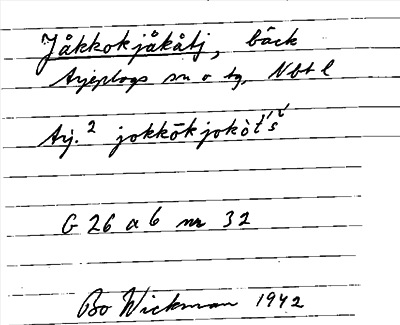 Jåkkokjåkåtj, bäck
Arjeplogs sn o tg, Nbt l
Arj.² jokkōkjokòt́'š́
G 26 a 6 nr 32
Bo Wickman 1942